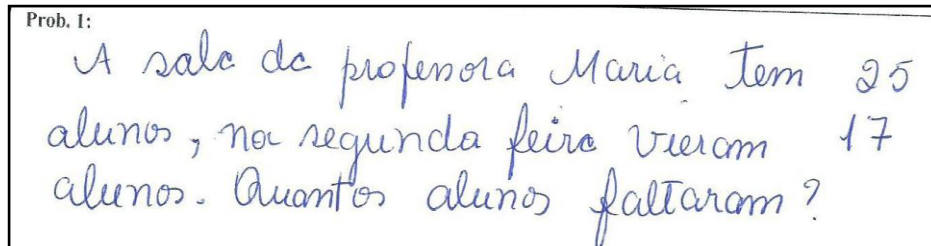 Prob. 1:
A sala da professora Maria tem 25
alunos, na segunda feira vieram 17
alunos. Quantos alunos faltaram?